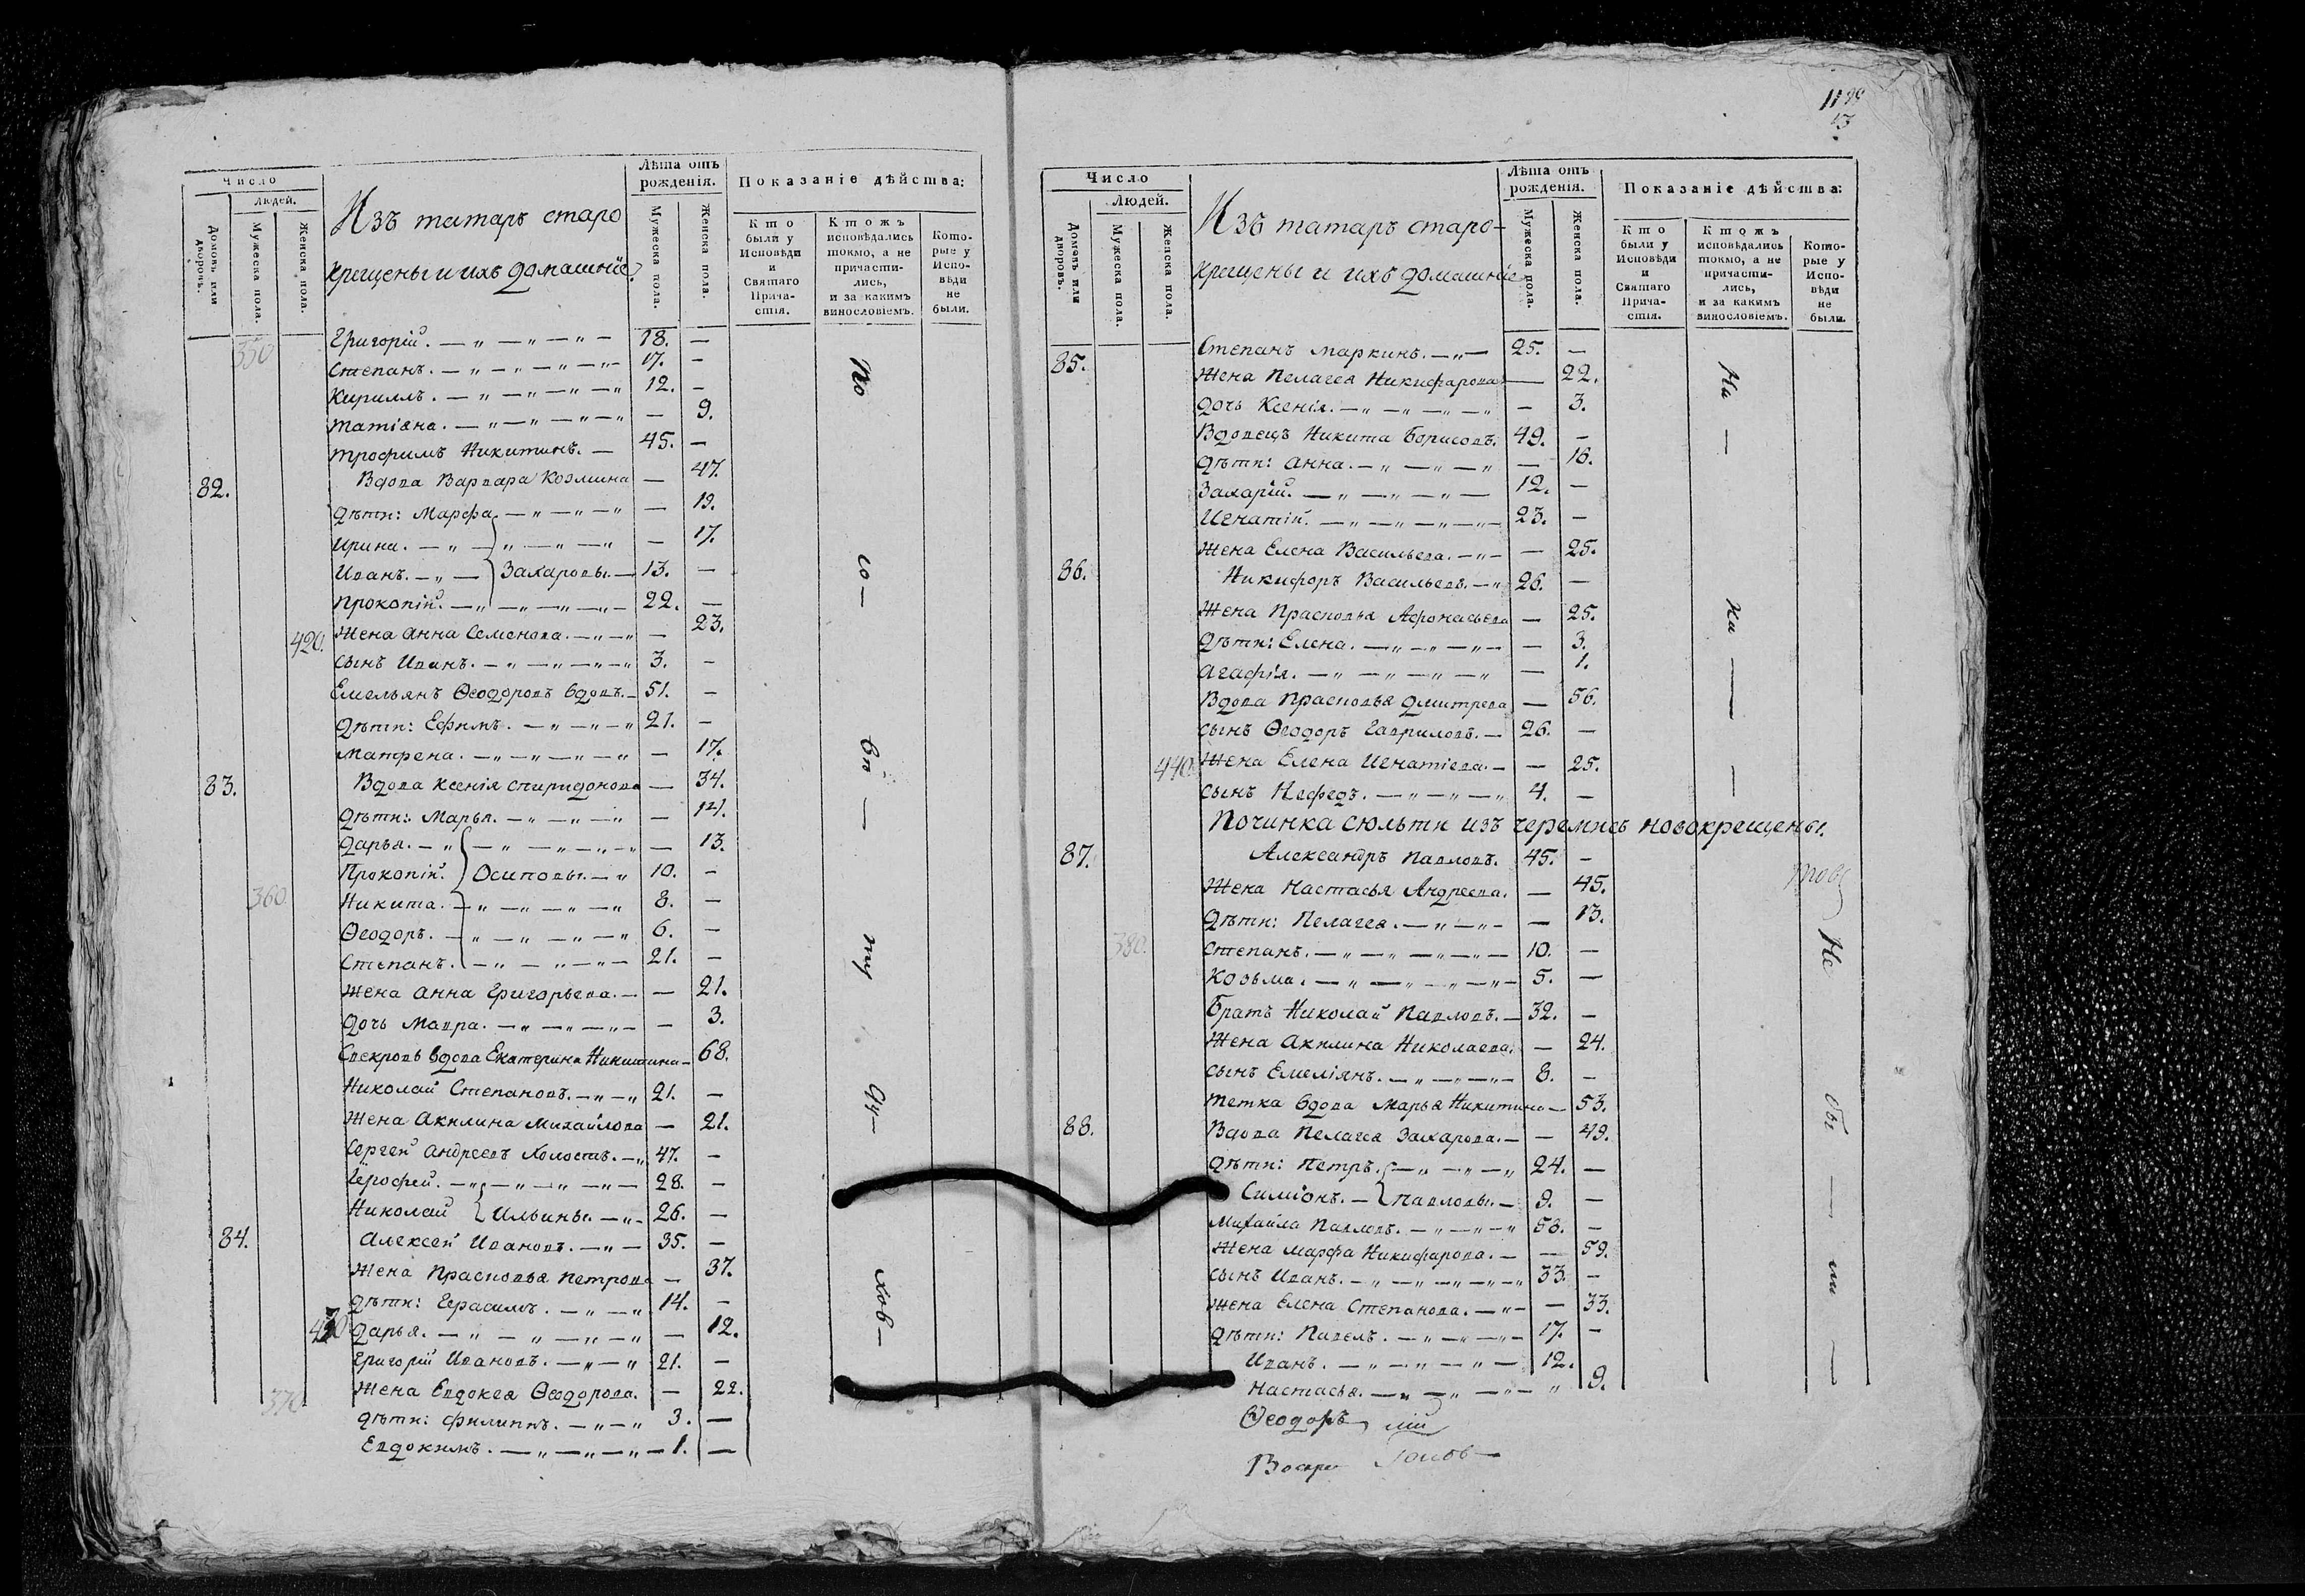 1199
13
Число
Людей.
Домовъ или дворовъ.
Мужеска пола.
Женска пола.
Изъ татаръ старо
крещены и ихъ домашніе
Лѣта отъ рожденія.
Мужеска пола.
Женска пола.
Показаніе дѣйства:
Кто были у Исповѣди и Святаго Причастія.
Ктожъ исповѣдались токмо, а не причастились, и за какимъ винословіемъ.
Которые у Исповѣди не были.
350 Григорій. 18. —
Степанъ. 17. —
Кириллъ. 12. —
Татіана. — 9.
Трофимъ Никитинъ. — 45. —
82. Вдова Варвара Козмина — 47.
Дѣти: Марфа. — 19.
Ирина. — 17.
Иванъ. Захаровы. 13. —
Прокопій. 22. —
420. Жена Анна Семенова. — 23.
Сынъ Иванъ. 3. —
Емельянъ Ѳеодоровъ вдовъ. 51. —
Дѣти: Ефимъ. 21. —
Матрена. — 17.
83. Вдова Ксенія Спиридонова — 34.
Дѣти: Марья. — 14.
Дарья. — 13.
Прокопій. Осиповы. 10. —
360 Никита. 8. —
Ѳеодоръ. 6. —
Степанъ. 21. —
Жена Анна Григорьева. — 21.
Дочь Мавра. — 3.
Свекровь вдова Екатерина Никитина — 68.
Николай Степановъ. 21. —
Жена Акилина Михайлова — 21.
Сергей Андреевъ холостъ. 47. —
Ерофей. 28. —
Николай Ильины. 26. —
84. Алексей Ивановъ. 35. —
Жена Прасковья Петрова — 37.
Дѣти: Герасимъ. 14. —
430 Дарья. — 12.
Григорій Ивановъ. 21. —
370 Жена Евдокея Ѳеодорова. — 22.
Дѣти: Филиппъ. 3. —
Евдокимъ. 1. —
по
со —
ву —
ту
ху —
хов —
Число
Людей.
Домовъ или дворовъ.
Мужеска пола.
Женска пола.
Изъ татаръ старо-
крещены и ихъ домашніе
Лѣта отъ рожденія.
Мужеска пола.
Женска пола.
Показаніе дѣйства:
Кто были у Исповѣди и Святаго Причастія.
Ктожъ исповѣдались токмо, а не причастились, и за какимъ винословіемъ.
Которые у Исповѣди не были.
85. Степанъ Маркинъ. 25. —
Жена Пелагея Никифарова — 22.
Дочь Ксенія. — 3.
Вдовецъ Никита Борисовъ. 49. —
Дѣти: Анна. — 16.
Захарій. 12. —
Игнатій. 23. —
Жена Елена Васильева. — 25.
86. Никифоръ Васильевъ. 26. —
Жена Прасковья Афонасьева — 25.
Дѣти: Елена. — 3.
Агафія. — 1.
Вдова Прасковья Дмитрева — 56.
Сынъ Ѳеодоръ Гавриловъ. 26. —
440. Жена Елена Игнатіева. — 25.
Сынъ Нефедъ. 4. —
Починка Сюльти изъ черемисъ новокрещены.
87. Александръ Павловъ. 45. —
Жена Настасья Андреева. — 45.
Дѣти: Пелагея. — 13.
380. Степанъ. 10. —
Козьма. 5. —
Братъ Николай Павловъ. 32. —
Жена Акилина Николаева. — 24.
Сынъ Емеліянъ. 8. —
Тетка вдова Марья Никитина — 53.
88. Вдова Пелагея Захарова. — 49.
Дѣти: Петръ. 24. —
Симіонъ. Павловы. 9. —
Михайла Павловъ. 58. —
Жена Марфа Никифарова. — 59.
Сынъ Иванъ. 33. —
Жена Елена Степанова. — 33.
Дѣти: Павелъ. 17. —
Иванъ. 12.
Настасья. 9.
Ѳеодоръ
На —
ка —
Не
бы —
ли —